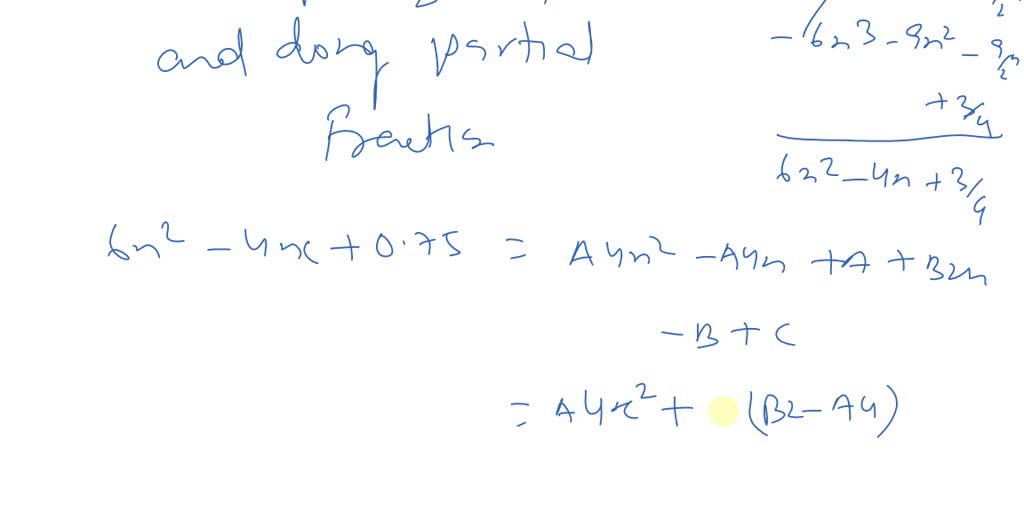 and dong partial
- (6x3 - 9x² - 9/2 x
+ 3/4
6x2 - 4x + 3/4
6x² - 4x + 0.75 = A4x² - A4x + A + B2x
- B + C
= A4x² + (B2 - A4)